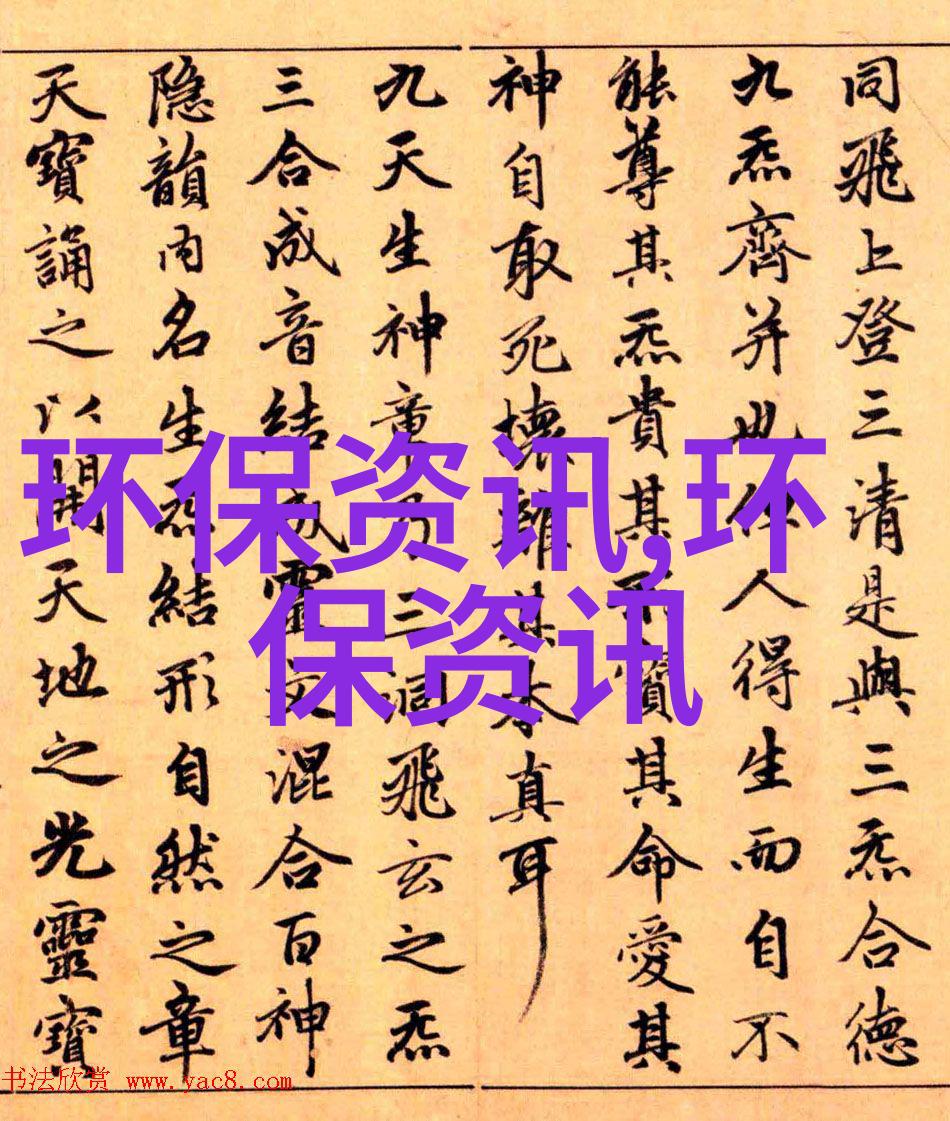 同飛上登三清是與三炁合德
九炁齊并此但人得生而自不
能尊其炁貴其形寶其命愛其
神自取死壞離其本真耳
九天生神章乃三洞飛玄之炁
三合成音結成靈文混合百神
隐韻内名生炁結形自然之章
天寶誦之以開天地之光靈寶
环保资讯,环
保资讯
书法欣赏 www.yac8.com